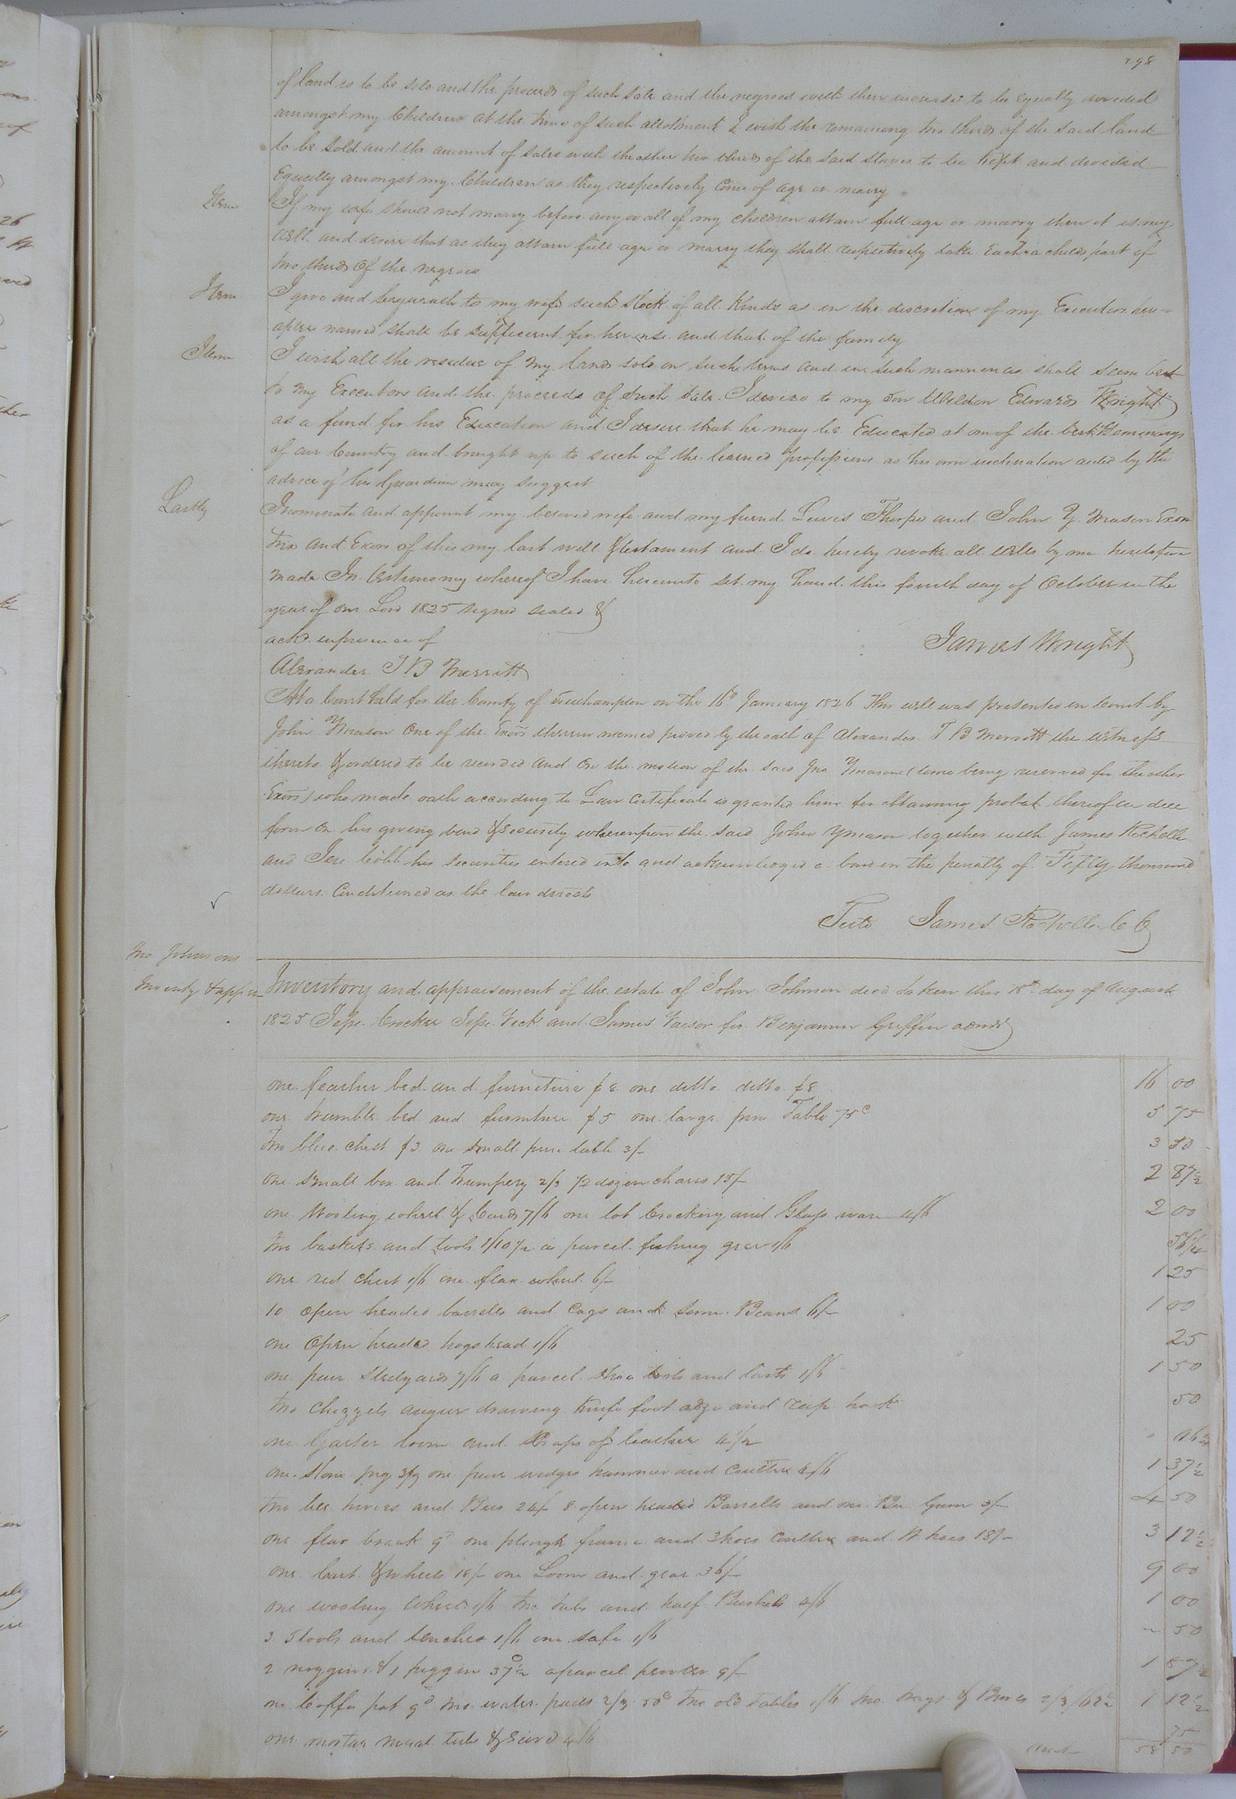 198
of land is to be sold and the proceeds of such sale and the negroes with their increase to be Equally divided
amongst my Children at the time of such allotment I wish the remaining two thirds of the said land
to be sold and the amount of sales with the other two thirds of the said slaves to be kept and devided
Equally amongst my Children as they respectively Come of age or marry
Item If my wife should not marry before any or all of my children attain full age or marry then it is my
will and desire that as they attain full age or marry they shall respectively take Each a childs part of
two thirds of the negroes
Item I give and bequeath to my wife such Stock of all Kinds as in the discretion of my Executors here-
after named shall be sufficient for her use and that of the family
Item I wish all the residue of my lands sold on such terms and in such manner as shall seem best
to my Executors and the proceeds of Such Sale I devise to my son Weldon Edwards Wright
as a fund for his Education and I desire that he may be Educated at one of the best Seminarys
of our Country and brought up to such of the learned professions as his own inclination aided by the
advice of his Guardian may suggest
Lastly I nominate and appoint my beloved wife and my friend Lewis Thorpe and John Y Mason Exon
trix and Exors of this my last will & testament and I do hereby revoke all Wills by me heretofore
made In testimony whereof I have hereunto set my hand this fourth day of October in the
year of our Lord 1825 signed sealed &
ackd. in presence of
James Wright
Alexander T B Merritt
At a Court held for the County of Southampton on the 16th January 1826 This will was presented in Court by
John Y Mason One of the Exors therein named proved by the oath of Alexander T B Merritt the witness
thereto & ordered to be recorded and On the motion of the said Jno Y Mason (time being reserved for the other
Exors) who made oath according to Law Certificate is granted him for obtaining probat thereof in due
form On his giving bond & security whereupon the said John Y Mason together with James Rochelle
and Jere Cobb his securities entered into and acknowledged a bond in the penalty of Fifty thousand
dollars Conditioned as the law directs
Teste James Rochelle C C
Jno Johnsons
Inventy & appr
Inventory and appraisement of the estate of John Johnson decd taken this 18th day of August
1825 Jesse Crocker and James for Benjamin Griffin admr
one feather bed and furniture $8 one ditto ditto $8 16 00
one trumble bed and furniture $5 one large pine Table 75c 5 75
two blue chest $3 one small pine table 3/- 3 50
one small box and Trumpery 2/3 1/2 dozen chairs 15/- 2 87½
one Wooling wheel & Cards 7/6 one lot Crockery and Glass ware 4/6 2 00
two baskets and tools 1/10½ a parcel fishing gear 1/6 56¼
one red chest 1/6 one flax wheel 6/- 1 25
10 open headed barrells and Cags and some Beans 6/- 1 00
one Open headed hogshead 1/6 25
one pair Stedyards 7/6 a parcel shoe tools and lasts 1/6 1 50
two Chezzels auguer drawing knife foot adze and reap hook 50
one Garter loom and Scraps of leather
one Stone Jug one pair wedges hammer and Coulter 4/6 1 37½
two bee hives and Bees 24/- 8 open headed Barrells and one Bee Gum 3/- 4 50
one flax brake 9d one plough frame and 3 hoes Coulter and W hoes 18/- 3 12½
one Cart & wheels 18/- one Loom and gear 36/- 9 00
one wooling Wheel 1/6 two tubs and half Bushel 4/6 1 00
3 Stools and benches 1/6 one safe 1/6 50
2 noggins & 1 piggin 37½ a parcel pewter 9/- 1 87½
one Coffee pot 9d two water pails 2/3 50c two old tables 1/6 two Jugs & 2/3 1 12½
one mortar meal tub & Sieve 4/6 75
58 50